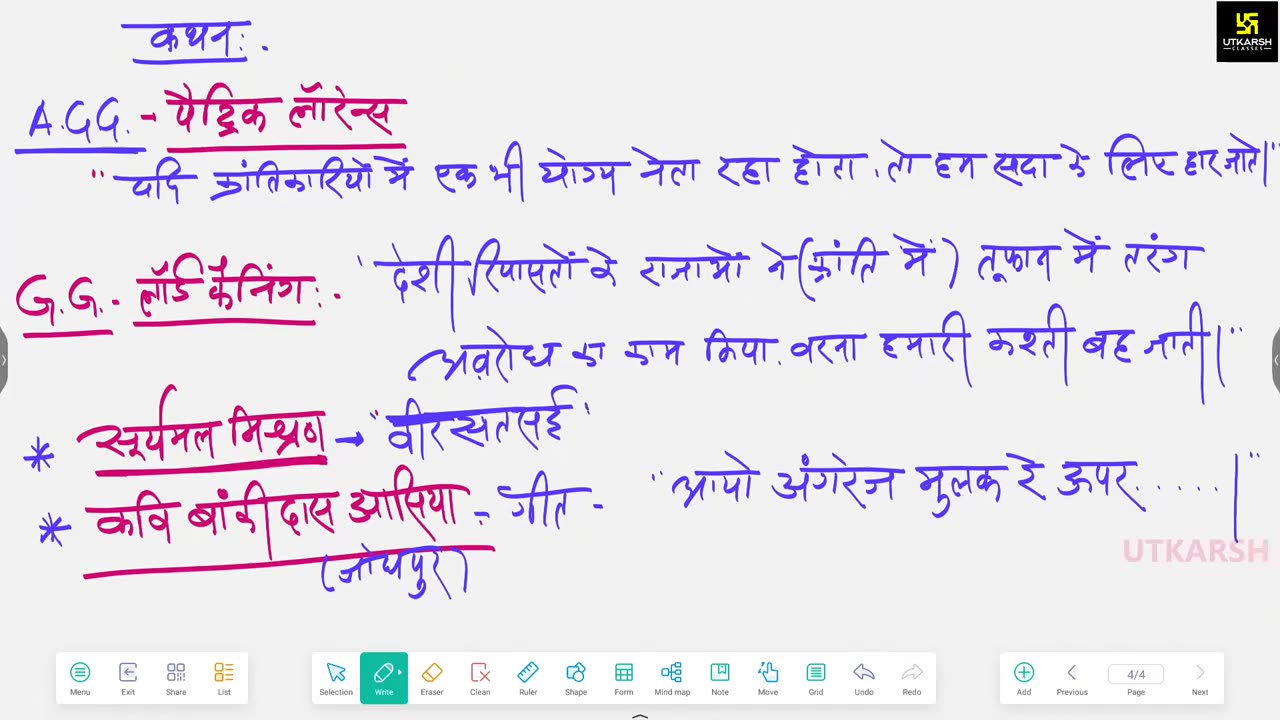 कथन:.
UTKARSH
CLASSES
A.G.G. - पैट्रिक लॉरेन्स
"यदि क्रांतिकारियों में एक भी योग्य नेता रहा होता, तो हम सदा के लिए हार जाते।"
G.G. - लॉर्ड कैनिंग:. 'देशी रियासतों के राजाओं ने (क्रांति में) तूफान में तरंग
अवरोध का काम किया, वरना हमारी कश्ती बह जाती।"
* सूर्यमल मिश्रण → "वीर सतसई"
* कवि बांकीदास आसिया - गीत - "आयो अंगरेज मुलक रे ऊपर......।"
(जोधपुर)
UTKARSH
Menu Exit Share List Selection Write Eraser Clean Ruler Shape Form Mind map Note Move Grid Undo Redo Add Previous 4/4 Page Next